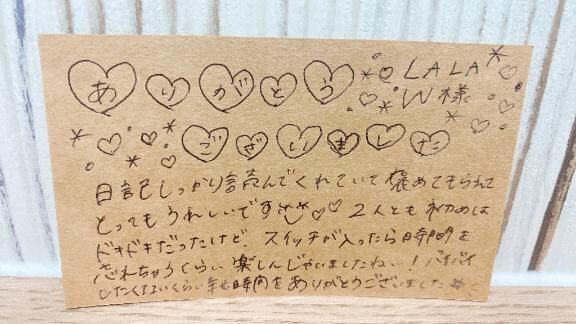 ありがとう LALA
W様
ございました
日記しっかり読んでくれていて 褒めてもらえて
とってもうれしいです 2人とも初めは
ドキドキだったけど、スイッチが入ったら時間を
忘れちゃうくらい楽しんじゃいましたねぃ! バイバイ
したくないくらい 時間をありがとうございました